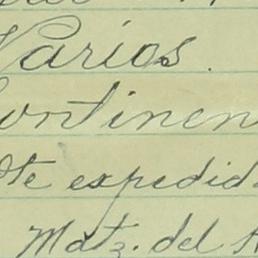 Varios.
ontinen
te expedid
Matz. del